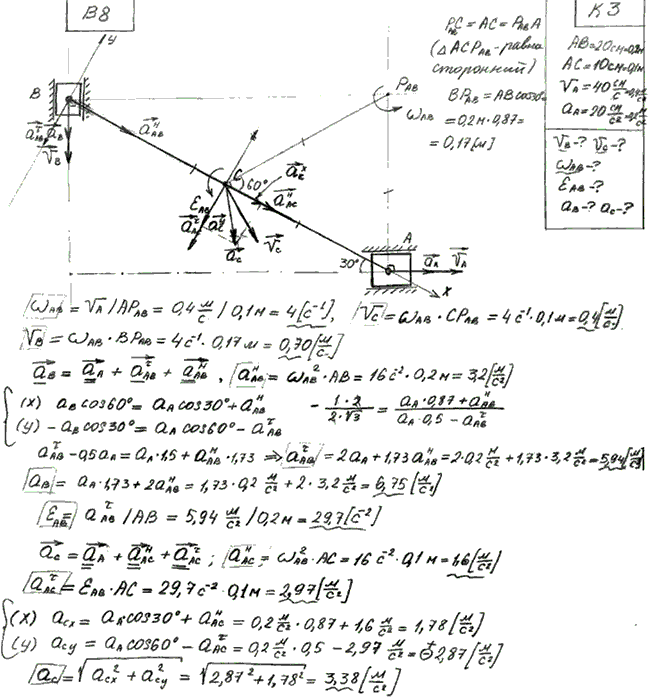 B8
K3
P_AB C = AC = P_AB A
(Δ ACP_AB - равно
сторонний)
BP_AB = AB cos30°
= 0,2м · 0,87 =
= 0,17 [м]
AB = 20см = 0,2м
AC = 10см = 0,1м
V_A = 40 см/с = 0,4 м/с
a_A = 20 см/с² = 0,2 м/с²
V_B - ? V_C - ?
ω_AB - ?
ε_AB - ?
a_B - ? a_C - ?
y
B
a^τ_AB a_B
V_B
a^н_AB
P_AB
ω_AB
C
60°
a^н_AC
ε_AB
a^τ_AC
a_C
V_C
A
30°
a_A V_A
x
ω_AB = V_A / AP_AB = 0,4 м/с / 0,1м = 4 [с⁻¹], V_C = ω_AB · CP_AB = 4с⁻¹ · 0,1м = 0,4 [м/с]
V_B = ω_AB · BP_AB = 4с⁻¹ · 0,17м = 0,70 [м/с]
a_B = a_A + a^τ_AB + a^н_AB, a^н_AB = ω_AB² · AB = 16с⁻² · 0,2м = 3,2 [м/с²]
(x) a_B cos60° = a_A cos30° + a^н_AB - 1·2 / 2·√3 = a_A · 0,87 + a^н_AB / a_A · 0,5 - a^τ_AB
(y) - a_B cos30° = a_A cos60° - a^τ_AB
a^τ_AB - 0,5a_A = a_A · 1,5 + a^н_AB · 1,73 ⇒ a^τ_AB = 2a_A + 1,73a^н_AB = 2·0,2 м/с² + 1,73 · 3,2 м/с² = 5,94 [м/с²]
a_B = a_A · 1,73 + 2a^н_AB = 1,73 · 0,2 м/с² + 2 · 3,2 м/с² = 6,75 [м/с²]
ε_AB = a^τ_AB / AB = 5,94 м/с² / 0,2м = 29,7 [с⁻²]
a_C = a_A + a^н_AC + a^τ_AC ; a^н_AC = ω_AB² · AC = 16 с⁻² · 0,1м = 1,6 [м/с²]
a^τ_AC = ε_AB · AC = 29,7с⁻² · 0,1м = 2,97 [м/с²]
(x) a_Cx = a_A cos30° + a^н_AC = 0,2 м/с² · 0,87 + 1,6 м/с² = 1,78 [м/с²]
(y) a_Cy = a_A cos60° - a^τ_AC = 0,2 м/с² · 0,5 - 2,97 м/с² = 2,87 [м/с²]
a_C = √a_Cx² + a_Cy² = √2,87² + 1,78² = 3,38 [м/с²]